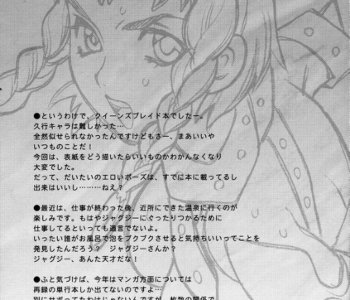 ●というわけで、クイーンズブレイド本でしたー。
久行キャラは難しかった…
全然似せられなかったんですけどもさー、まあいいや
いつものことだ!
今回は、表紙をどう描いたらいいものかわかんなくなり
大変でした。
だって、だいたいのエロいポーズは、すでに本に載ってるし
出来はいいし……ねえ?
●最近は、仕事が終わった後、近所にできた温泉に行くのが
楽しみです。もはやジャグジーにぐったりつかるために
仕事してるといっても過言でないよ。
いったい誰がお風呂で泡をブクブクさせると気持ちいいってことを
発見したんだろう?ジャグジー天さんか?
ジャグジー、あんた天才だ!
●ふと気づけば、今年はマンガ方面については
再録の単行本しか出てないのですよ…